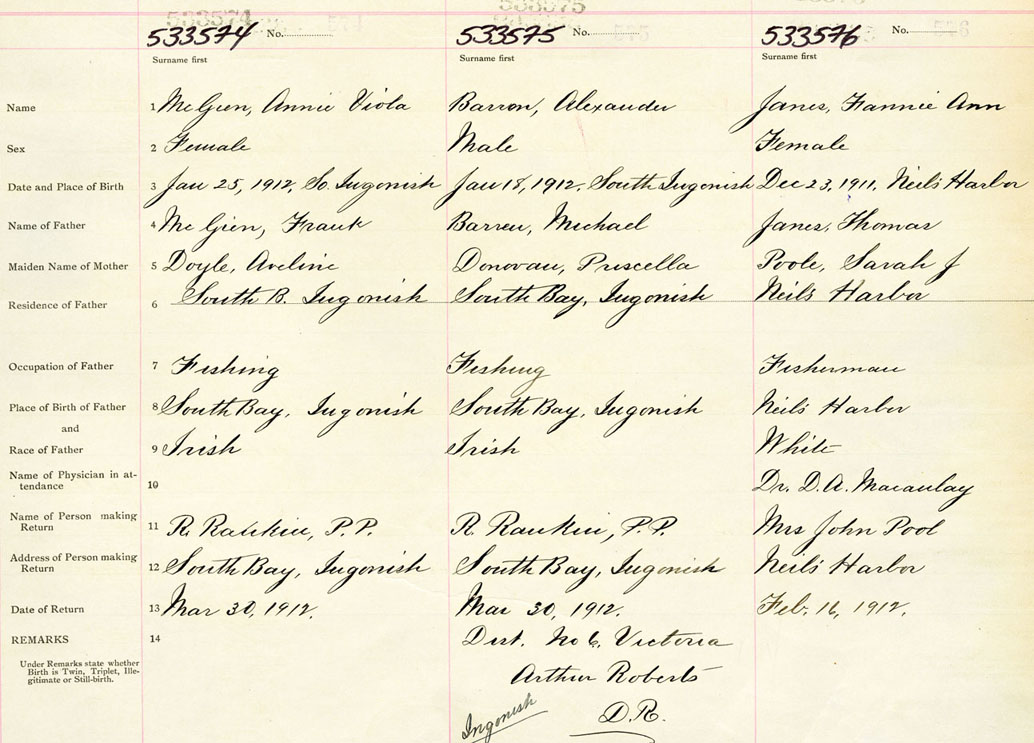 533574 No. 533575 No. 533576 No.
Surname first Surname first Surname first
Name 1 McGien, Annie Viola Barron, Alexander Janes, Fannie Ann
Sex 2 Female Male Female
Date and Place of Birth 3 Jan 25, 1912, So. Ingonish Jan 18, 1912. South Ingonish Dec 23, 1911. Neil's Harbor
Name of Father 4 McGien, Frank Barren, Michael Janes, Thomas
Maiden Name of Mother 5 Doyle, Aveline Donovan, Priscella Poole, Sarah J
Residence of Father 6 South B. Ingonish South Bay, Ingonish Neil's Harbor
Occupation of Father 7 Fishing Fishing Fisherman
Place of Birth of Father 8 South Bay, Ingonish South Bay, Ingonish Neil's Harbor
and
Race of Father 9 Irish Irish White
Name of Physician in at-
tendance 10 Dr. D. A. Macaulay
Name of Person making
Return 11 R. Rankin, P.P. R. Rankin, P.P. Mrs John Pool
Address of Person making
Return 12 South Bay, Ingonish South Bay, Ingonish Neil's Harbor
Date of Return 13 Mar 30, 1912. Mar 30, 1912. Feb. 16, 1912.
REMARKS 14 Dist. No 6. Victoria
Under Remarks state whether
Birth is Twin, Triplet, Ille-
gitimate or Still-birth.
Arthur Roberts
Ingonish D.R.